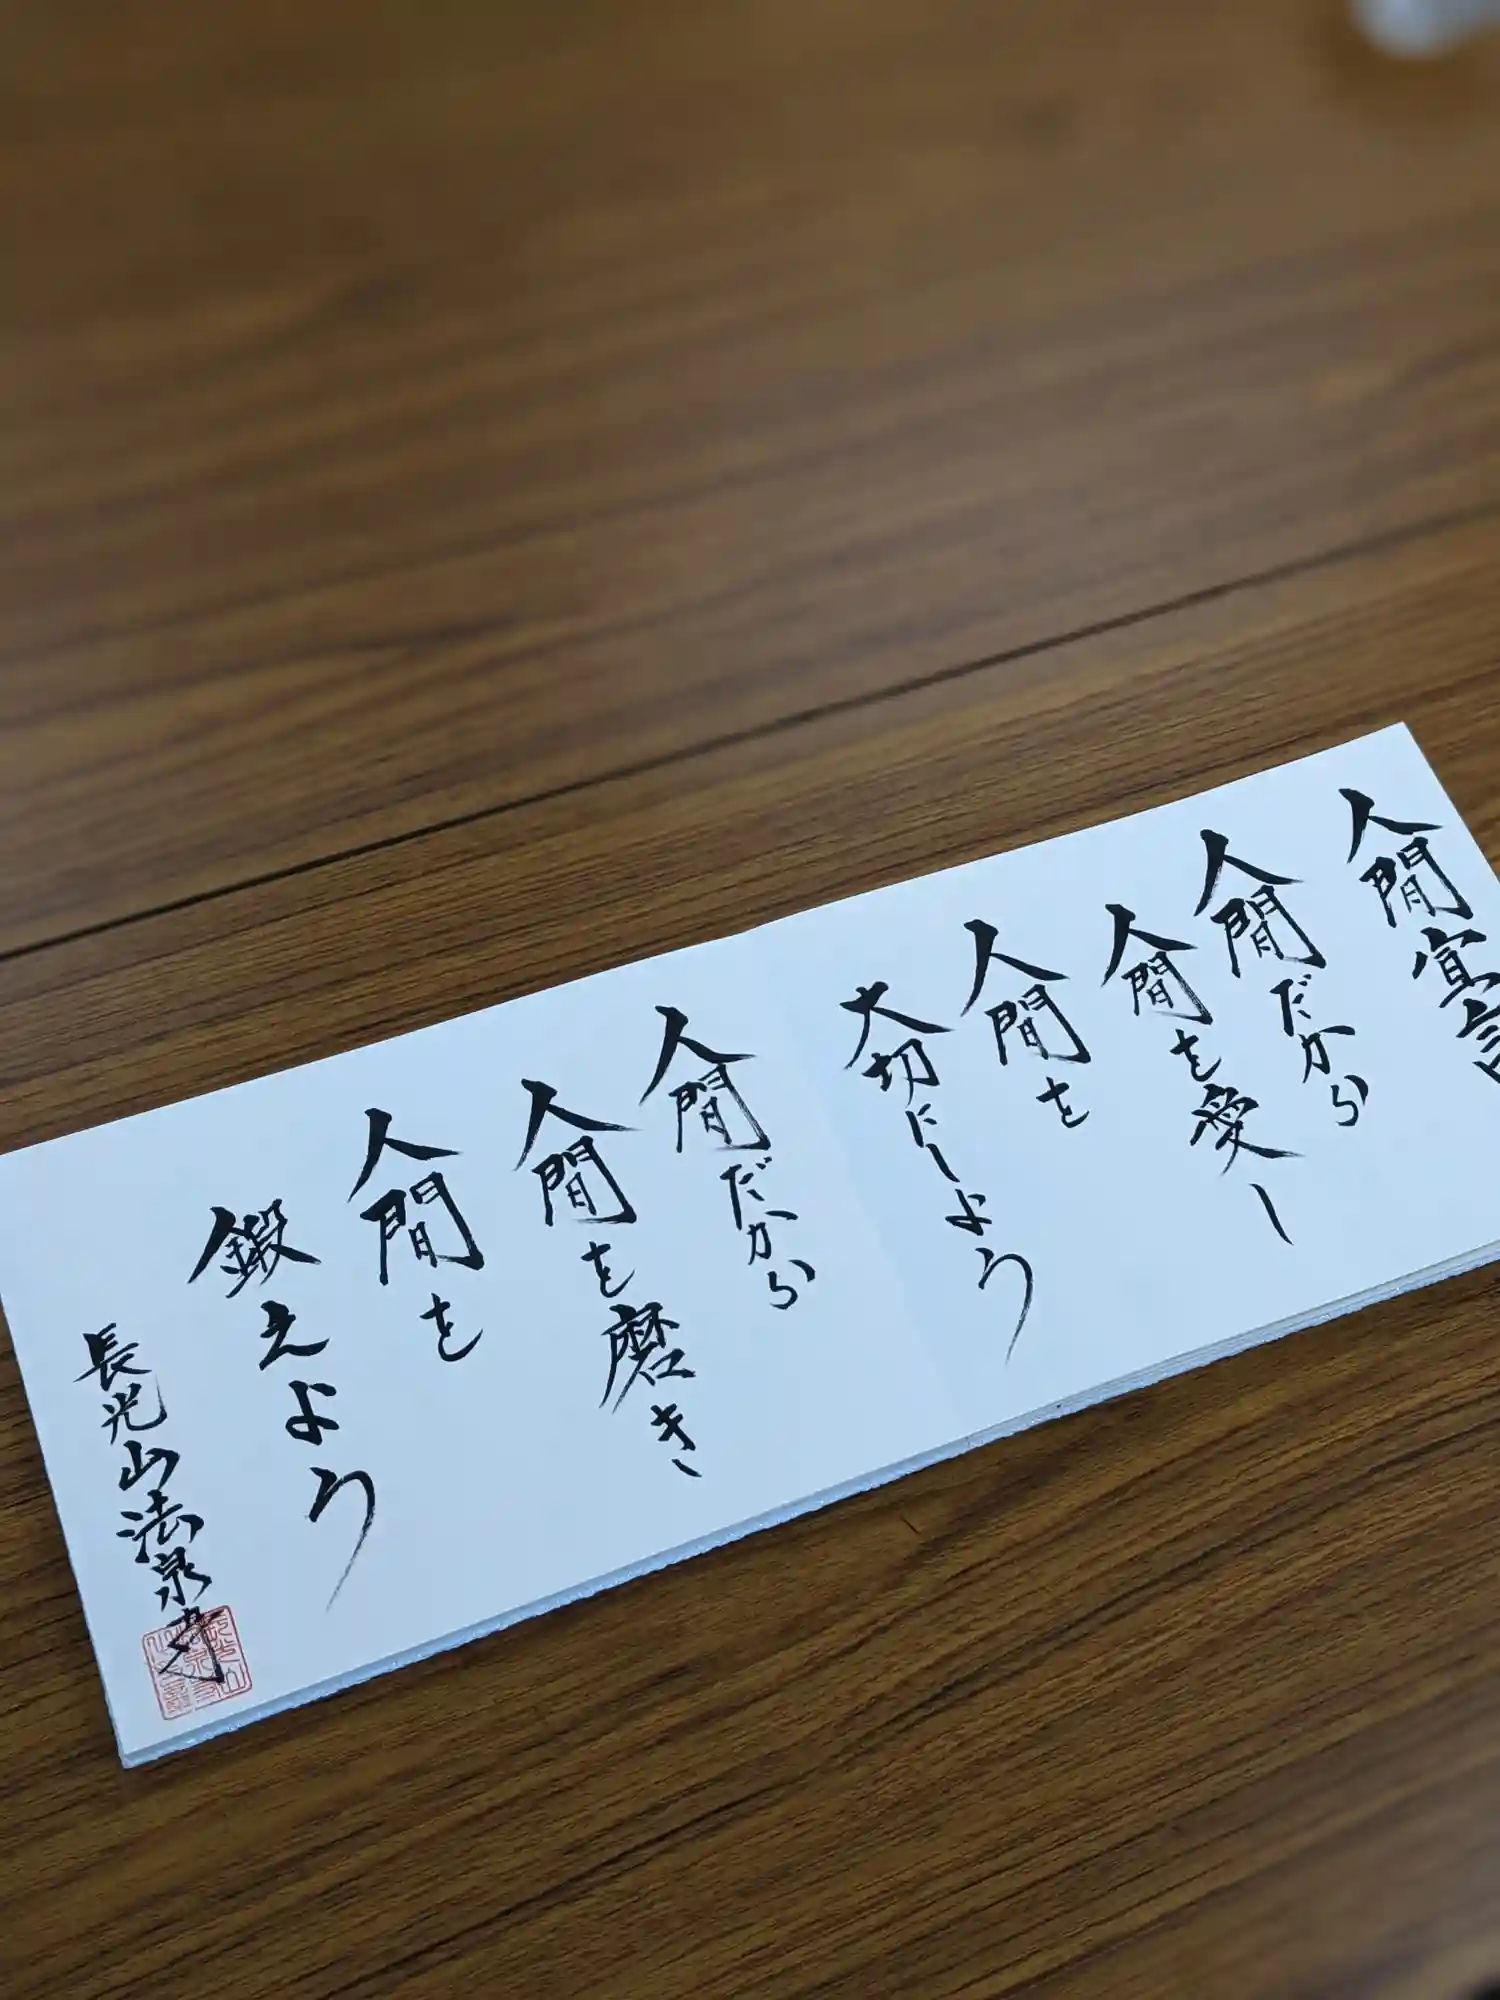 人間宣言
人間だから
人間を愛し
人間を
大切にしよう
人間だから
人間を磨き
人間を
鍛えよう
長光山法泉寺